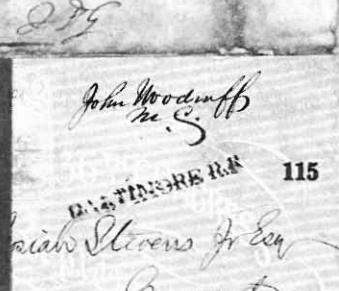 John Woodruff
M.C.
BALTIMORE R.R
115
Stevens Jr Esq